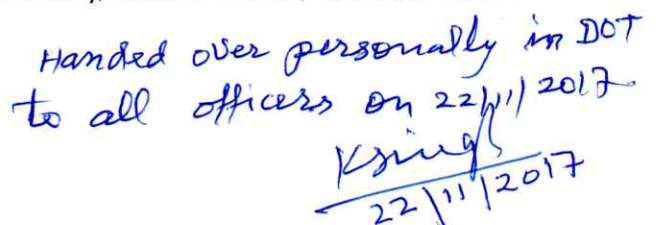 Handed over personally in DOT
to all officers on 22/11/2017
KSingh
22/11/2017